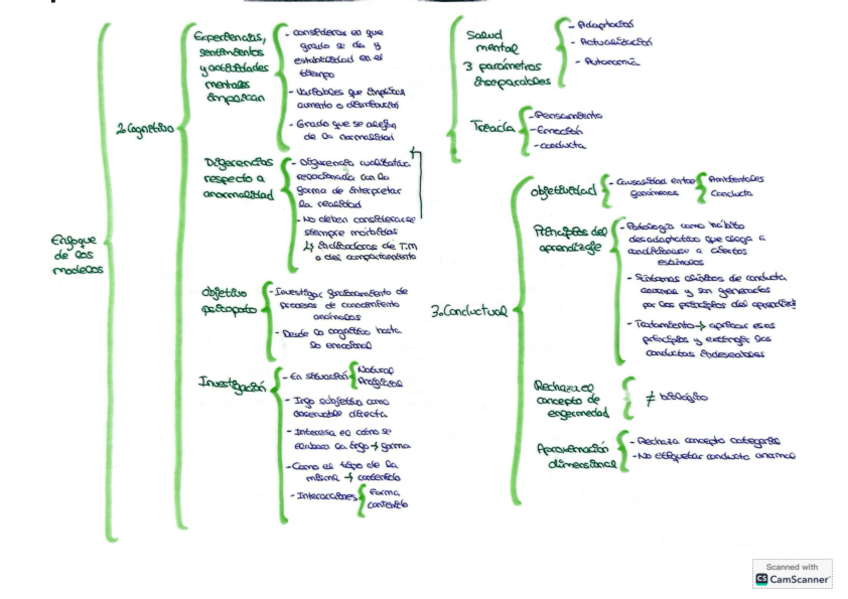 Enfoque
de los
modelos
2. Cognitivo
Experiencias,
sentimientos
y actividades
mentales
implican
- considerar en que
grado se da y
estabilidad en el
tiempo
- Variables que implican
aumento o disminución
- Grado que se alejan
de la normalidad
Diferencias
respecto a
anormalidad
- Diferencia cualitativa
relacionada con la
forma de interpretar
la realidad
- No deben considerarse
siempre morbidas
↳ indicadoras de T.M
o del comportamiento
Objetivo
psicopato
- Investigar funcionamiento de
procesos de conocimiento
anómalos
- Desde lo cognitivo hasta
lo emocional
Investigación
- En situación
Natural
Artificial
- Info subjetiva como
observable directa
- Interesa el cómo se
elabora la info → forma
- Como el tipo de la
misma → contenido
- Interacciones
Forma
Contenido
Salud
mental
3 parámetros
inseparables
- Adaptación
- Actualización
- Autonomía
Triada
- Pensamiento
- Emoción
- conducta
3. Conductual
objetividad
- Causalidad entre
fenómenos
Ambientales
Conducta
Principios del
aprendizaje
- Patología como hábito
desadaptativo que llega a
condicionarse a ciertos
estímulos
- Síntomas clínicos de conducta
anormal y son generados
por los principios del
- Tratamiento → aplicar esos
principios y extinguir las
conductas indeseables
Rechaza el
concepto de
enfermedad
≠ biológico
Aproximación
dimensional
- Rechaza concepto categorial
- No etiquetar conducta anormal
Scanned with
CS CamScanner